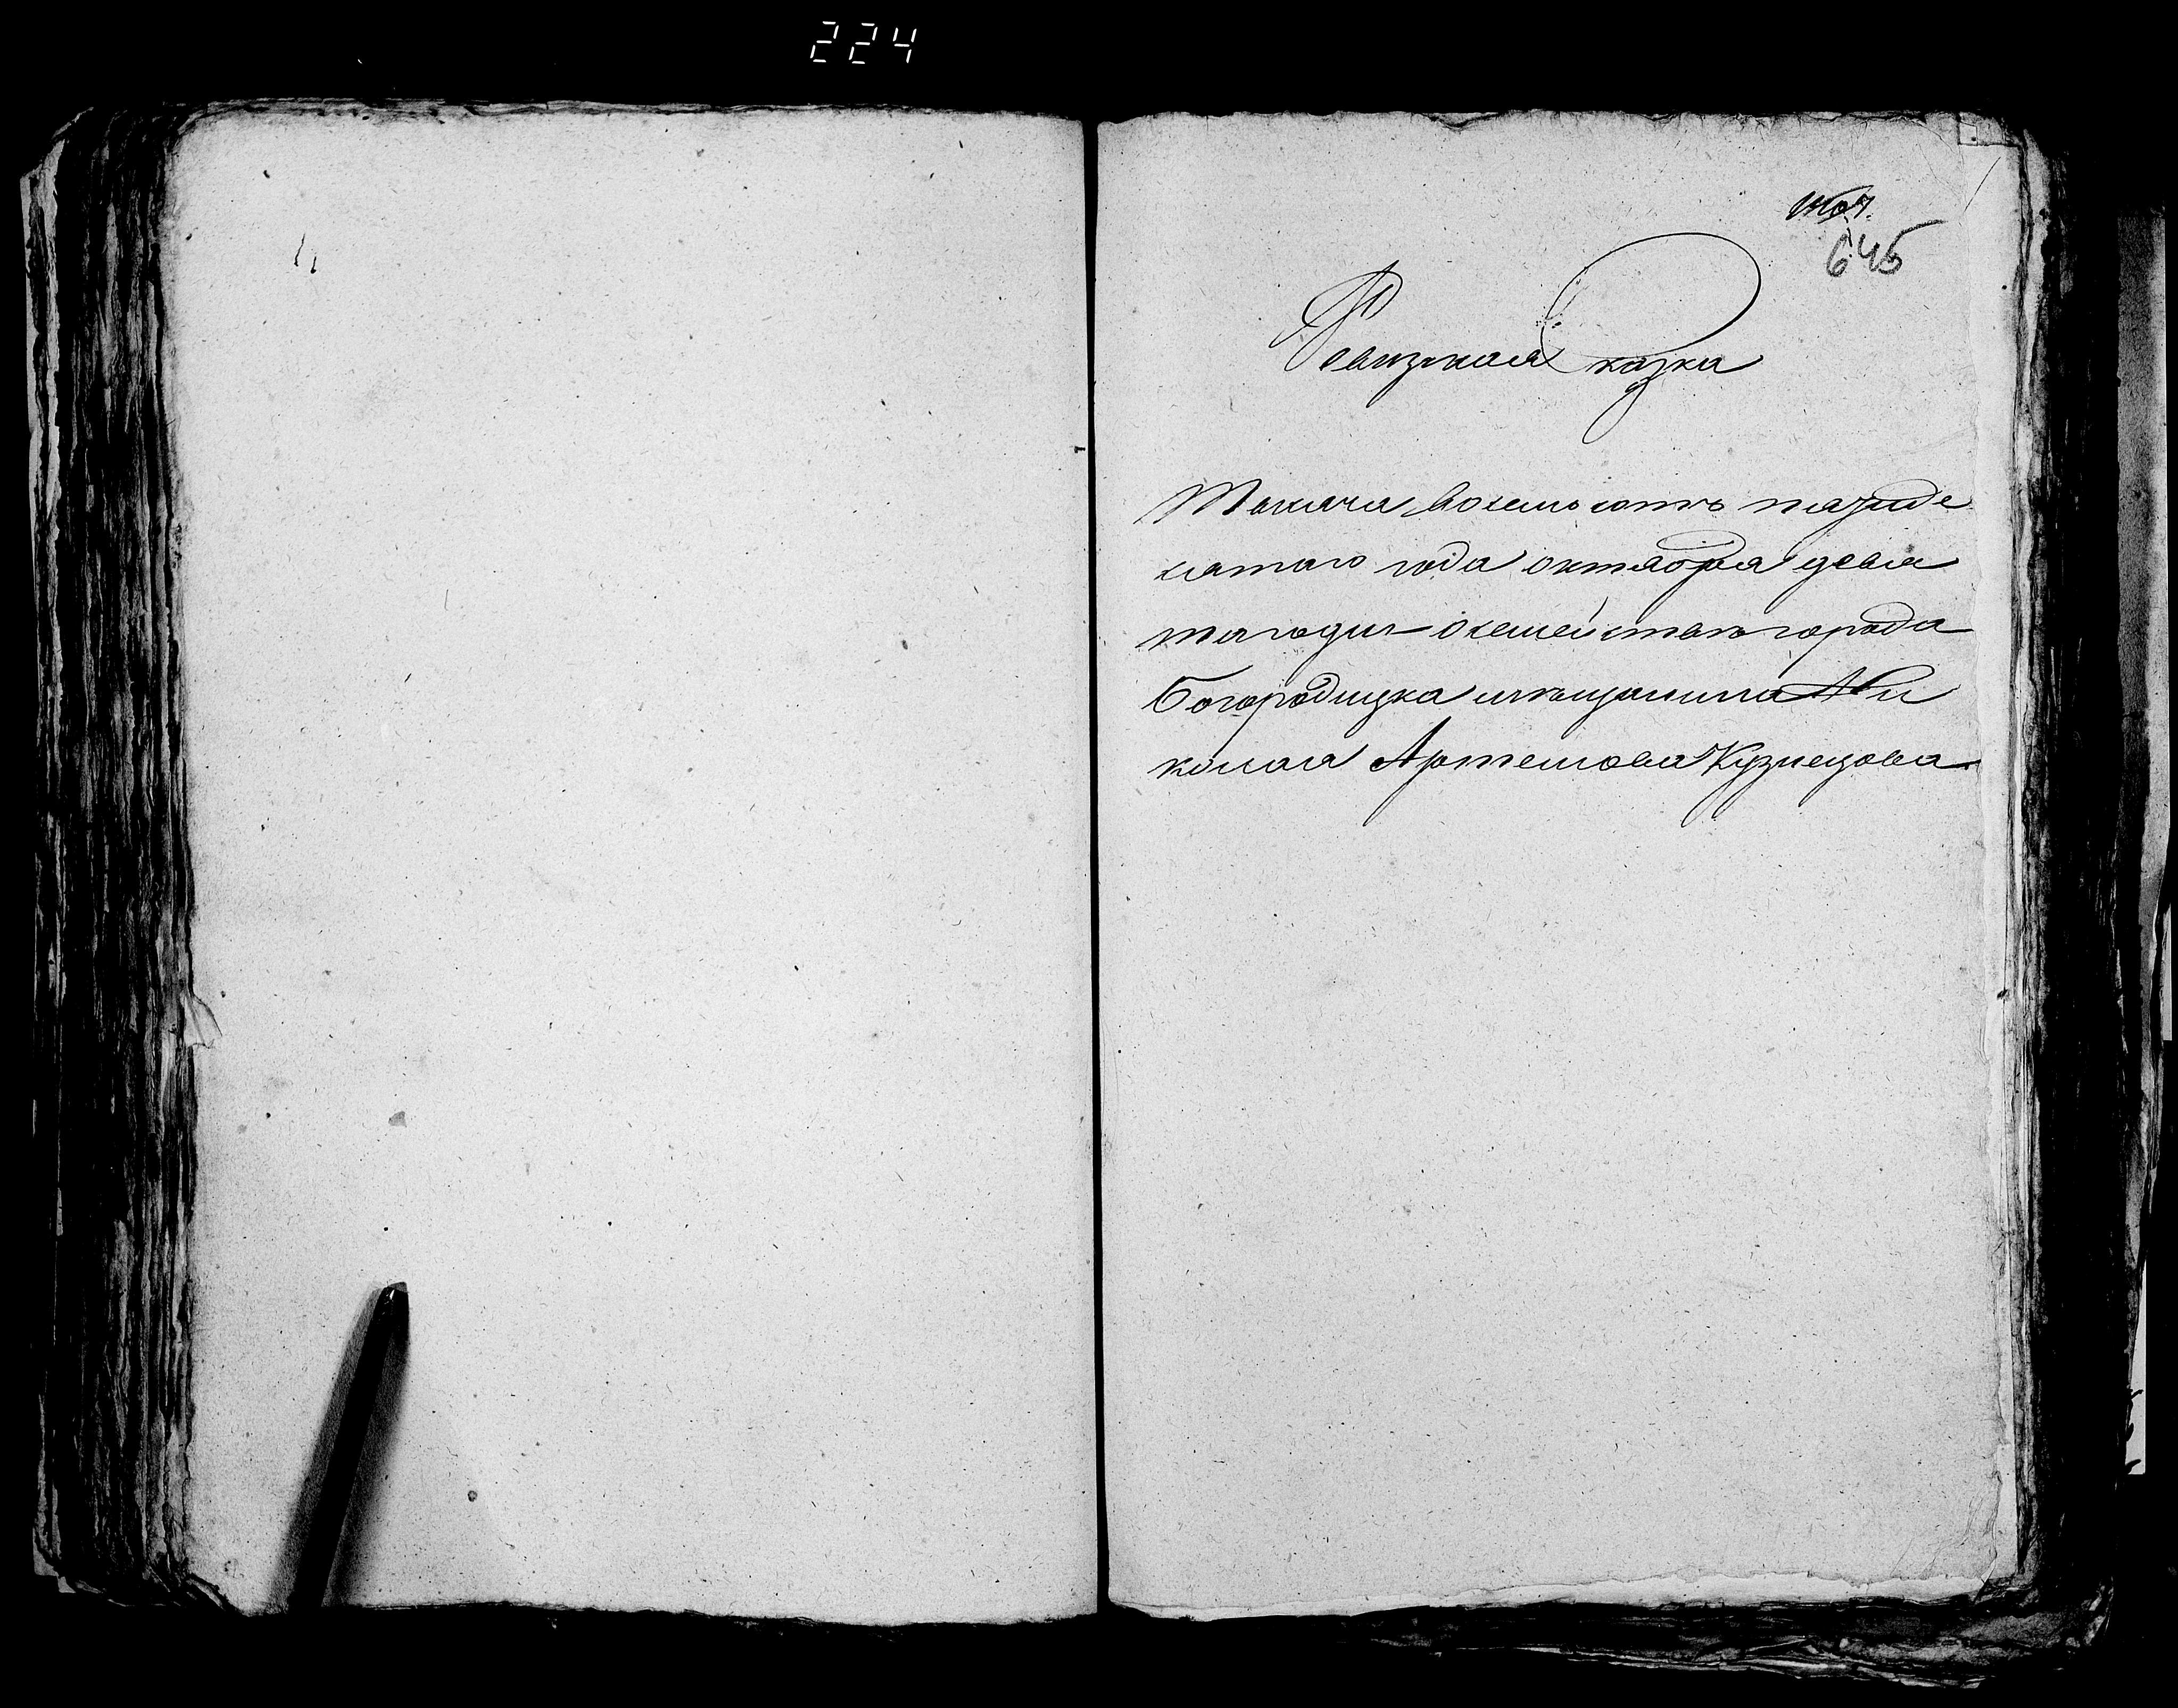 224
645
Ревизская Сказка
Тысяча восемь сотъ пятьде
сятаго года октября девя
таго дня о семействѣ города
Богородицка мѣщанина Ни
колая Артемова Кузнецова